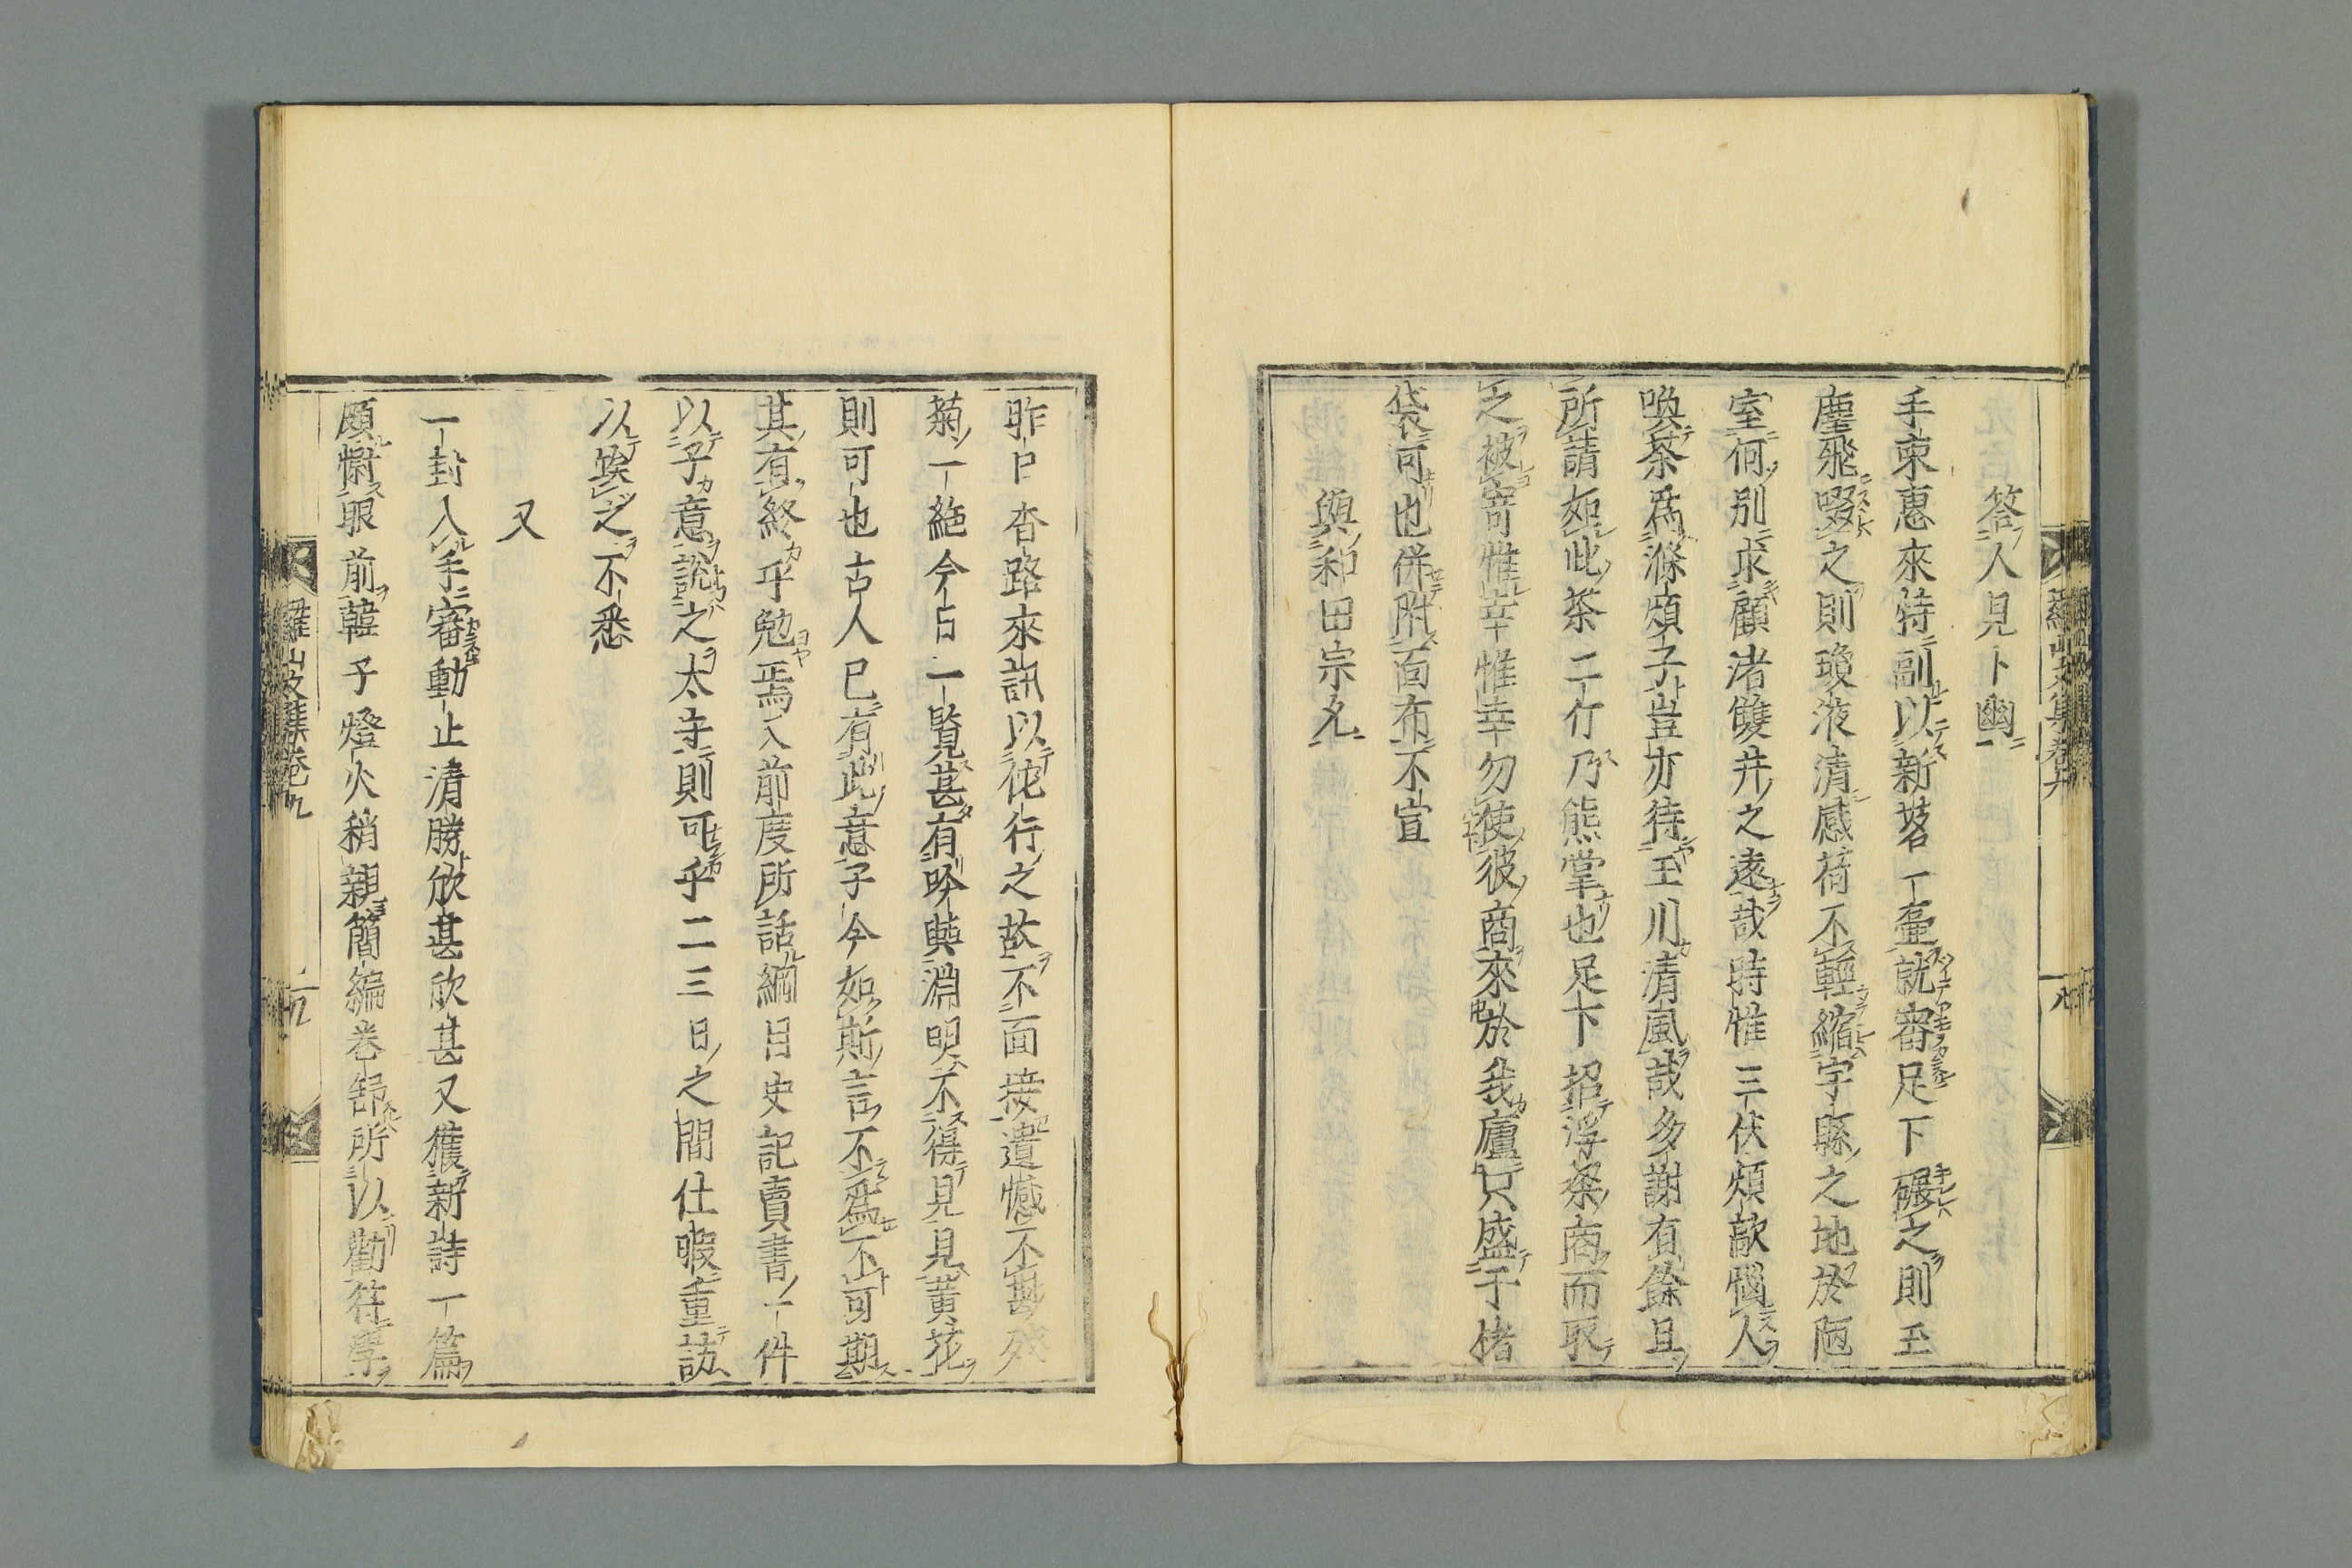 答人見卜幽
手柬惠來特副以新茗一壷就審足下碾之則玉
塵飛啜之則瓊液清感荷不輕縮宇縣之地於陋
室何別求顧渚雙井之遠哉時惟三伏煩歊惱人
喚茶爲滌煩子豈亦待玉川清風哉多謝有餘且
所請如此茶二竹乃熊掌也足下招浮梁商而取
之被寄惟幸惟幸勿使彼商來於我廬只盛于楮
袋可也併附面布不宣
與和田宗允
昨日杏路來訊以佗行之故不面接遺憾不尠殘
菊一絶今占一覽甚有吟興淵明不得見見黃花
則可也古人已有此意子今如斯言不爲不可期
其有終乎勉焉入前度所話綱目史記賣書一件
以子意說之太寺則可乎二三日之間仕暇重訪
以俟之不悉
又
一封入手審動止清勝欣甚欣甚又獲新詩一篇
頗慰眼前韓子燈火稍親簡編卷舒所以勸符學
羅山文集卷九
九